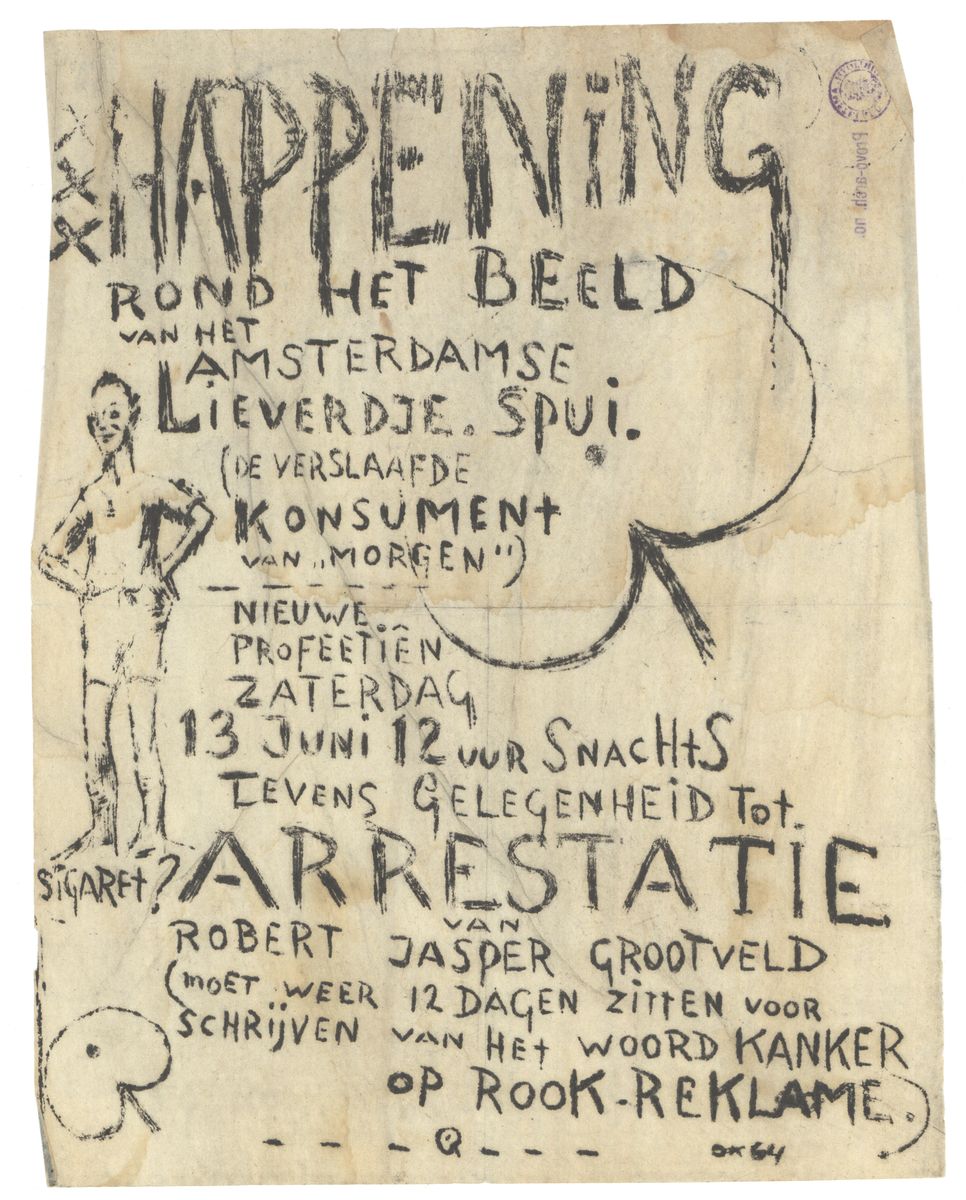 XXX
HAPPENiNG
ROND HET BEELD
VAN HET
AMSTERDAMSE
LIEVERDJE. SPUi.
(DE VERSLAAFDE
KONSUMENt
VAN „MORGEN")
NIEUWE
PROFEETIËN
ZATERDAG
13 JUNI 12 UUR SNACHtS
TEVENS GELEGENHEiD Tot
SIGAREt?
ARRESTATiE
VAN
ROBERT JASPER GROOTVELD
(MOET WEER 12 DAGEN ZITTEN VOOR
SCHRIJVEN VAN HEt WOORD KANKER
OP ROOK-REKLAME.)
Provo-arch. no.